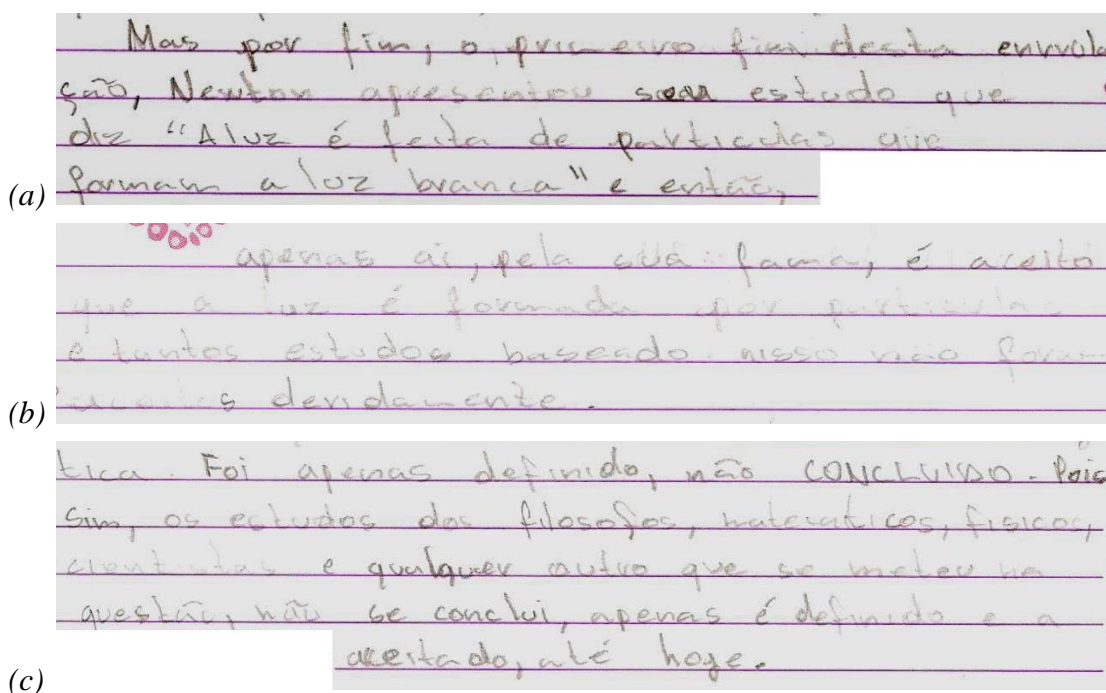 Mas por fim, o primeiro fim desta enrrola
ção, Newton apresentou seu estudo que
diz "A luz é feita de particulas que
(a) formam a luz branca" e então,
apenas ai, pela sua fama, é aceito
que a luz é formada por particulas
e tantos estudos baseado nisso não foram
(b) s devidamente.
tica. Foi apenas definido, não CONCLUIDO. Pois
sim, os estudos dos filosofos, matematicos, fisicos,
cientistas e qualquer outro que se meteu na
questão, não se conclui, apenas é definido e a
aceitado, até hoje.
(c)